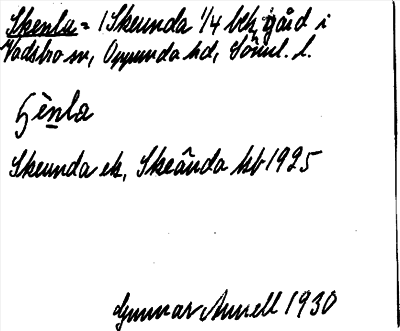 Skenla = 1 Skeunda 1/4 bek. gård i
Vadsbro sn, Oppunda hd, Söml. l.
ɧènla
Skeunda ek, Skeånda kb 1925
Gunnar Annell 1930